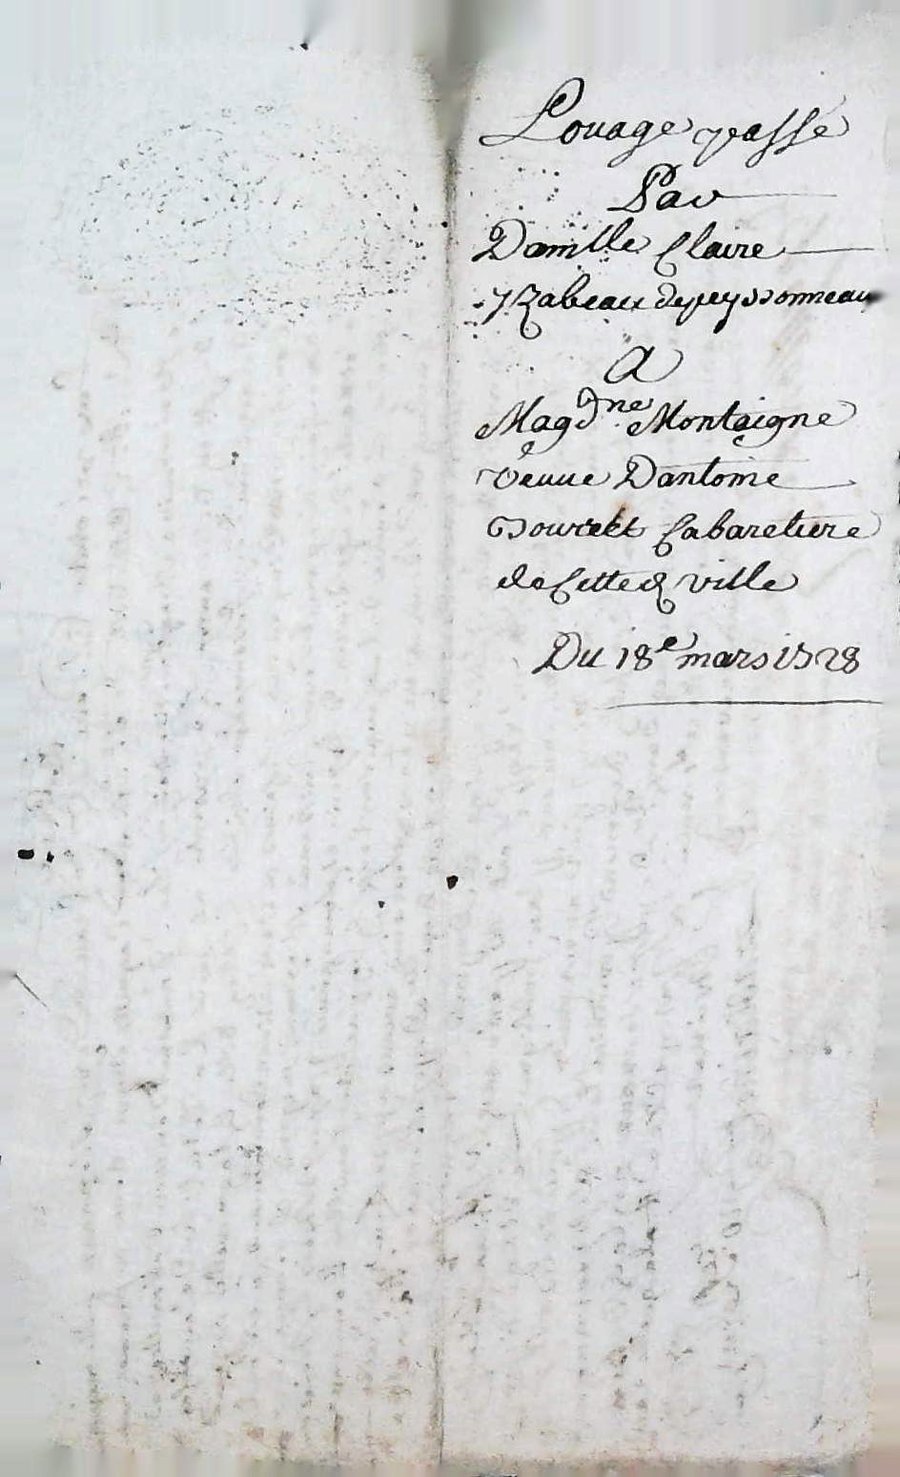 Louage passé
Par
Damlle Claire
yzabeau depeyssonneau
A
Magdne Montaigne
veuue Dantoine
Bourelt Cabaretiere
de Cette ville
Du 18e mars 1728